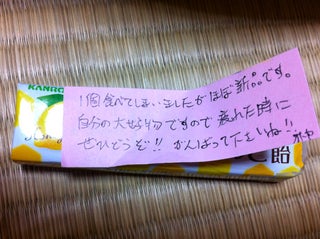 KANRO
1個食べてしまいましたがほぼ新品です。
自分の大好物ですので疲れた時に
ぜひどうぞ!! がんばって下さいね!!
飴